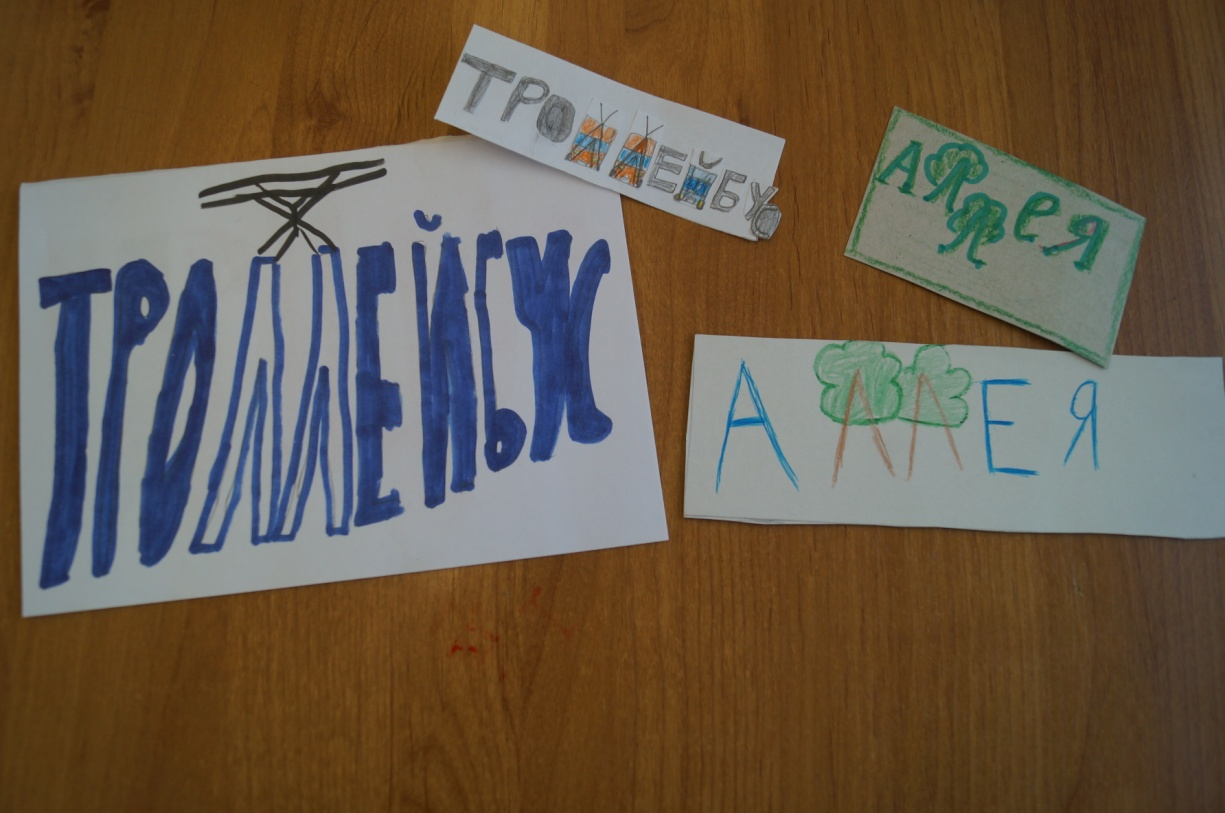 ТРОЛЛЕЙБУС
ТРОЛЛЕЙБУС
АЛЛеЯ
АЛЛЕЯ